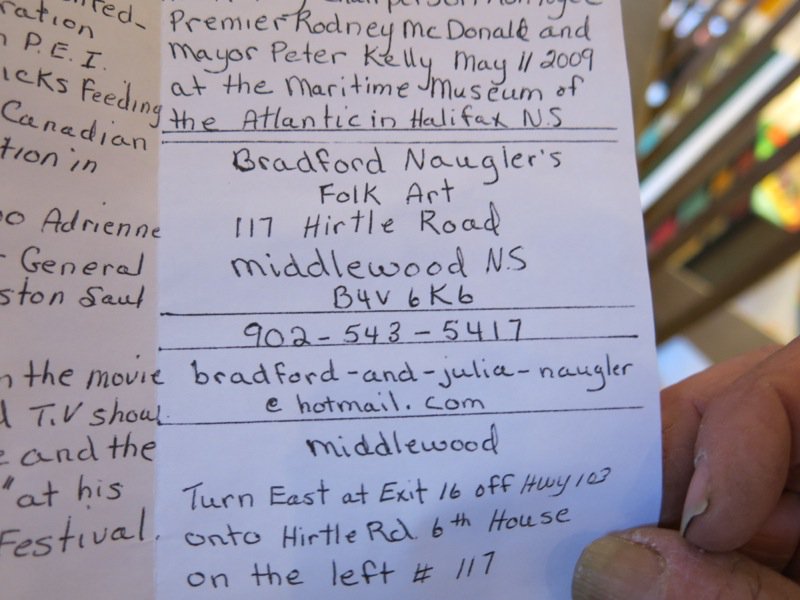 ration
n P.E.I.
icks Feeding
Canadian
tion in
Adrienne
General
ston Saul
n the movie
T.V show
and the
"at his
Festival.
Premier Rodney McDonald and
Mayor Peter Kelly May 11 2009
at the Maritime Museum of
the Atlantic in Halifax N.S
Bradford Naugler's
Folk Art
117 Hirtle Road
middlewood N.S
B4V 6K6
902-543-5417
bradford-and-julia-naugler
@ hotmail.com
middlewood
Turn East at Exit 16 off Hwy 103
onto Hirtle Rd. 6th House
on the left # 117